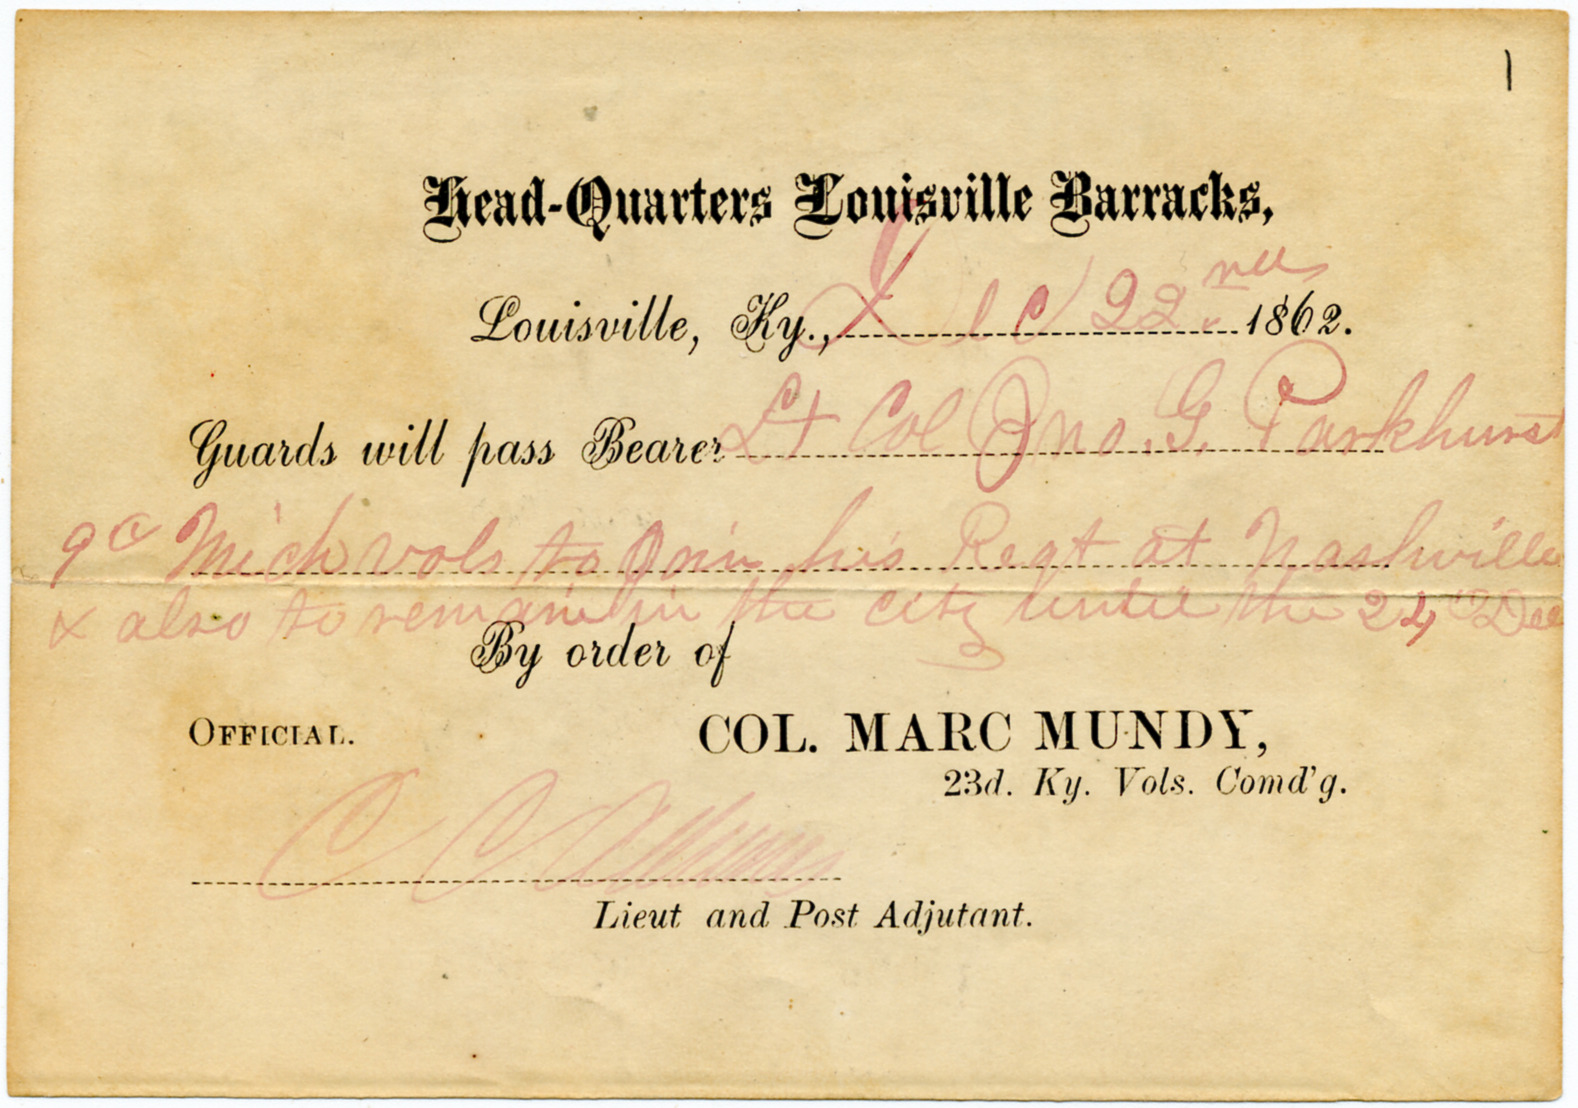 1
Head-Quarters Louisville Barracks,
Louisville, Ky., Dec 22nd 1862.
Guards will pass Bearer Lt Col Jno. G. Parkhurst
9th Mich vols to Join his Regt at Nashville
& also to remain in the city until the 24th Dec
By order of
OFFICIAL. COL. MARC MUNDY,
23d. Ky. Vols. Comd'g.
C C
Lieut and Post Adjutant.